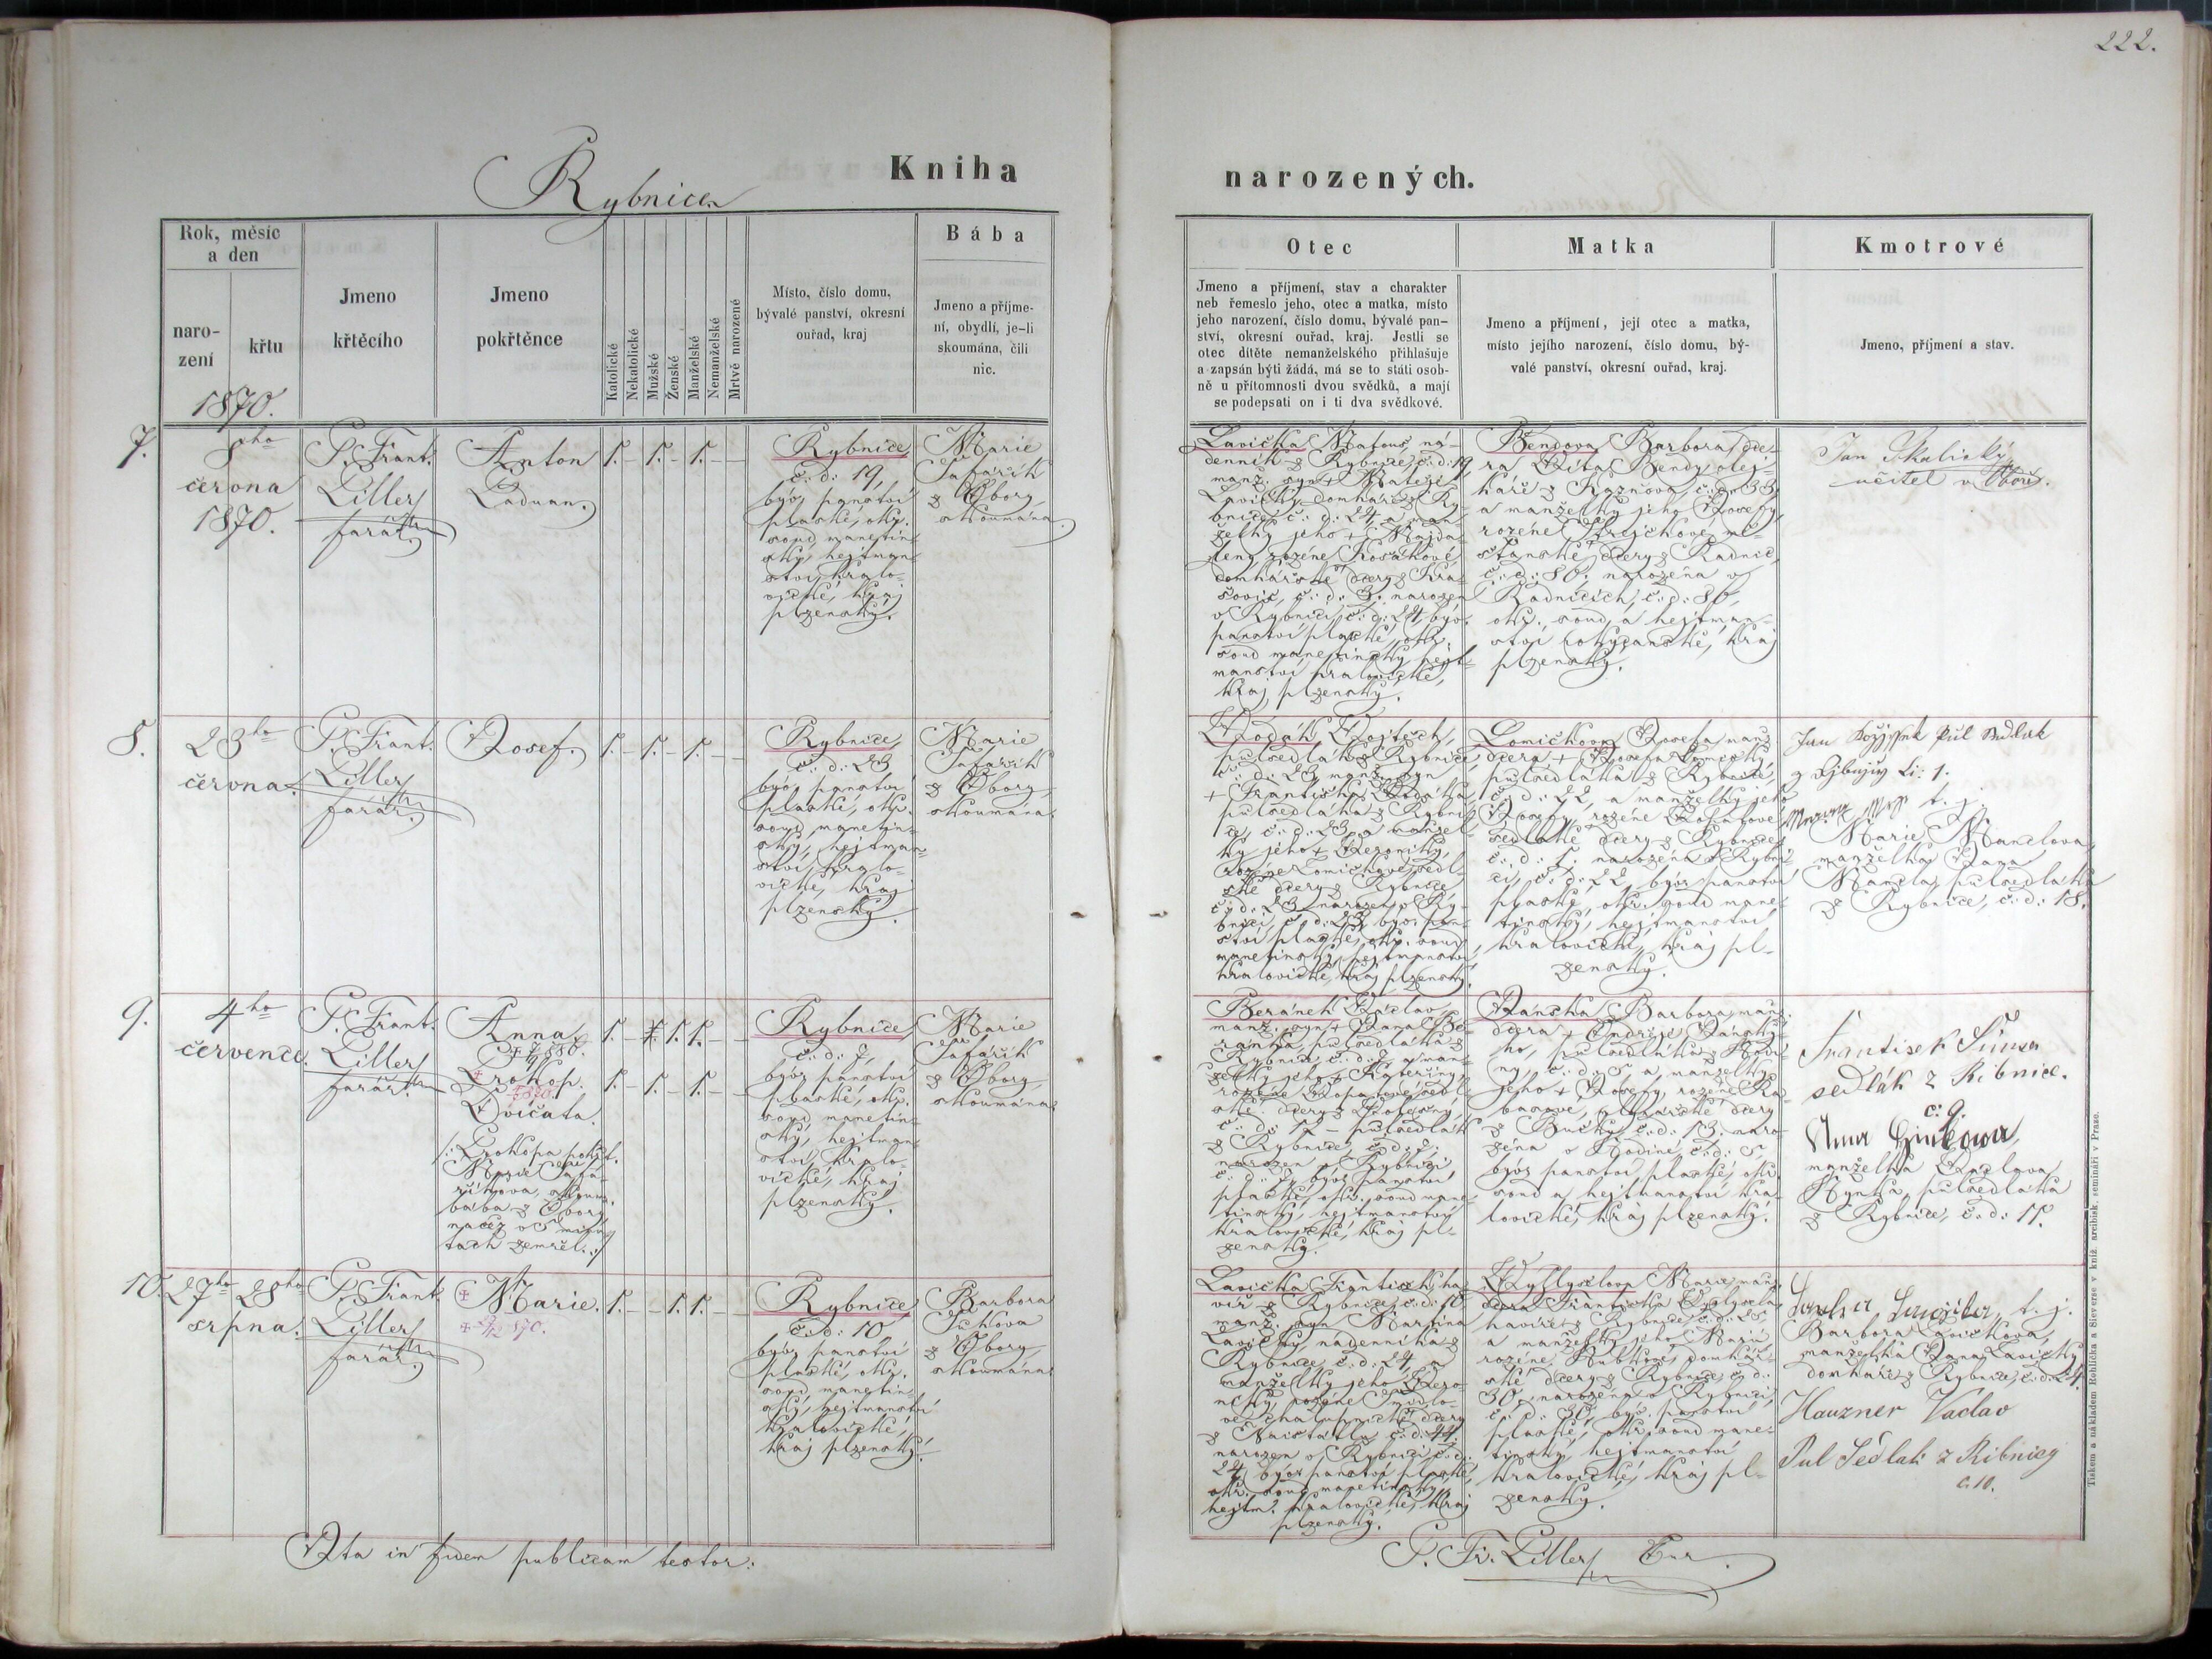 222.
Rybnice
Kniha
narozených.
Rok, měsíc
a den
naro-
zení
křtu
1870.
Jmeno
křtěcího
Jmeno
pokřtěnce
Katolické
Nekatolické
Mužské
Ženské
Manželské
Nemanželské
Mrtvě narozené
Místo, číslo domu,
bývalé panství, okresní
ouřad, kraj
Bába
Jmeno a příjme-
ní, obydlí, je-li
skoumána, čili
nic.
Otec
Jmeno a příjmení, stav a charakter
neb řemeslo jeho, otec a matka, místo
jeho narození, číslo domu, bývalé pan-
ství, okresní ouřad, kraj. Jestli se
otec dítěte nemanželského přihlašuje
a zapsán býti žádá, má se to státi osob-
ně u přítomnosti dvou svědků, a mají
se podepsati on i ti dva svědkové.
Matka
Jmeno a příjmení, její otec a matka,
místo jejího narození, číslo domu, bý-
valé panství, okresní ouřad, kraj.
Kmotrové
Jmeno, příjmení a stav.
7.
8ho
června
1870.
P. Frant.
Liller
farář
Anton
Ladman.
1. – 1. – 1. – –
Rybnice
č: d: 19,
býv. panství
plaské, okr.
soud manetín-
ský, hejtman-
ství kralo-
vické, kraj
plzenský.
Marie
Šafařík
z Obory
skoumána.
Lavička Matouš ná-
denník z Rybnice, č: d: 19,
manž. syn + Matěje
Lavičky, domkáře z Ry-
bnice, č: d: 24, a man-
želky jeho + Majda-
leny, rozené
domkářské dcery z Kra-
šovic, č: d: 3, narozen
v Rybnici, č: d: 24, býv.
panství plaské, okr.
soud manetínský, hejt-
manství kralovické,
kraj plzenský.
Bendova Barbora, dce-
ra Víta Bendy, olej-
káře z Kaznějova, č: d: 33,
a manželky jeho Josefy,
rozené mě-
šťanské dcery z Radnic,
č: d: 80, narozena v
Radnicích, č: d: 80,
okr. soud a hejtman-
ství rokycanské, kraj
plzenský.
Jan Skalický
učitel v Oboře.
8.
23ho
června.
P. Frant.
Liller
farář
Josef.
1. – 1. – 1. – –
Rybnice,
č: d: 23
býv. panství
plaské, okr.
soud manetín-
ský, hejtman-
ství kralo-
vické, kraj
plzenský.
Marie
Šafařík
z Obory
skoumána.
Vodák Vojtěch,
půlsedlák z Rybnice,
č: d: 23, manž. syn
+ Františka Vodáka,
půlsedláka z Rybni-
ce, č: d: 23, a manžel-
ky jeho + Veroniky,
rozené Lomičkové, sedl-
ské dcery z Rybnice,
č: d: 23, narozen v Ry-
bnici, č: d: 23, býv. pan-
ství plaské, okr. soud
manetínský, hejtmanství
kralovické, kraj plzenský.
Lomičkova Josefa, manž.
dcera + Josefa Lomičky,
půlsedláka z Rybnice,
č: d: 22, a manželky jeho
Josefy, rozené
sedlské dcery z Rybnice,
č: d: 5, narozena v Rybni-
ci, č: d: 22, býv. panství
plaské, okr. soud mane-
tínský, hejtmanství
kralovické, kraj pl-
zenský.
Jan půl sedlak
Marie Manclova,
manželka Jana
Mancla, půlsedláka
z Rybnice, č: d: 18.
9.
4ho
července.
P. Frant.
Liller
farář
Anna
Prokop.
Dvíčata.
/: Prokopa pokřt.
Marie Šafa-
říkova, skoum.
bába z Obory,
načež v 5 minu-
tách zemřel. :/
1. – 1. 1. – –
1. – 1. – 1. – –
Rybnice,
č: d: 7,
býv. panství
plaské, okr.
soud manetín-
ský, hejtman-
ství kralo-
vické, kraj
plzenský.
Marie
Šafařík
z Obory
skoumána.
Beránek Václav,
manž. syn + Jana Be-
ránka, půlsedláka z
Rybnice, č: d: 7, a man-
želky jeho + Kateřiny,
rozené sedl-
ské dcery z
č: d: 12 – půlsedlák
z Rybnice, č: d: 7,
narozen v Rybnici,
č: d: 7, býv. panství
plaské, okr. soud mane-
tínský, hejtmanství
kralovické, kraj pl-
zenský.
Jánská Barbora, manž.
dcera + Ondřeje Jánské-
ho, půlsedláka z Hodi-
ny, č: d: 5, a manželky
jeho + Josefy, rozené
dcery
z Bučku, č: d: 13, naro-
zena v Hodině, č: d: 5,
býv. panství plaské, okr.
soud a hejtmanství kra-
lovické, kraj plzenský.
Frantisek Šimsa
sedlák z Ribnice.
c: 9.
Anna
manželka Václava
Hynka, půlsedláka
z Rybnice, č: d: 11.
10.
27ho 28ho
srpna.
P. Frant.
Liller
farář
Marie.
1. – – 1. 1. – –
Rybnice
č: d: 10
býv. panství
plaské, okr.
soud manetín-
ský, hejtmanství
kralovické,
kraj plzenský.
Barbora
z Obory
skoumána.
Lavička František, ha-
víř z Rybnice, č: d: 10,
manž. syn Martina
Lavičky, nádenníka z
Rybnice, č: d: 24, a
manželky jeho Vero-
niky, rozené
chalupnické dcery
č: d: 44,
narozen v Rybnici, č: d:
24, býv. panství plaské,
okr. soud manetínský,
hejtm. kralovické, kraj
plzenský.
Marie, manž.
dcera Františka
havíře z Rybnice, č: d:
a manželky jeho Marie,
rozené domkář-
ské dcery z Rybnice, č: d:
30, narozena v Rybnici,
č: d: 30, býv. panství
plaské, okr. soud mane-
tínský, hejtmanství
kralovické, kraj pl-
zenský.
Barbora Lavičkova,
manželka Jana Lavičky,
domkáře z Rybnice, č: d: 24.
Hauzner Vaclav
Pul Sedlak z Ribnicy
c. 10.
Ita in fidem publicam testor:
P. Fr. Liller
Tiskem a nákladem Rohlíčka a Sieverse v kníž. arcibisk. semináři v Praze.